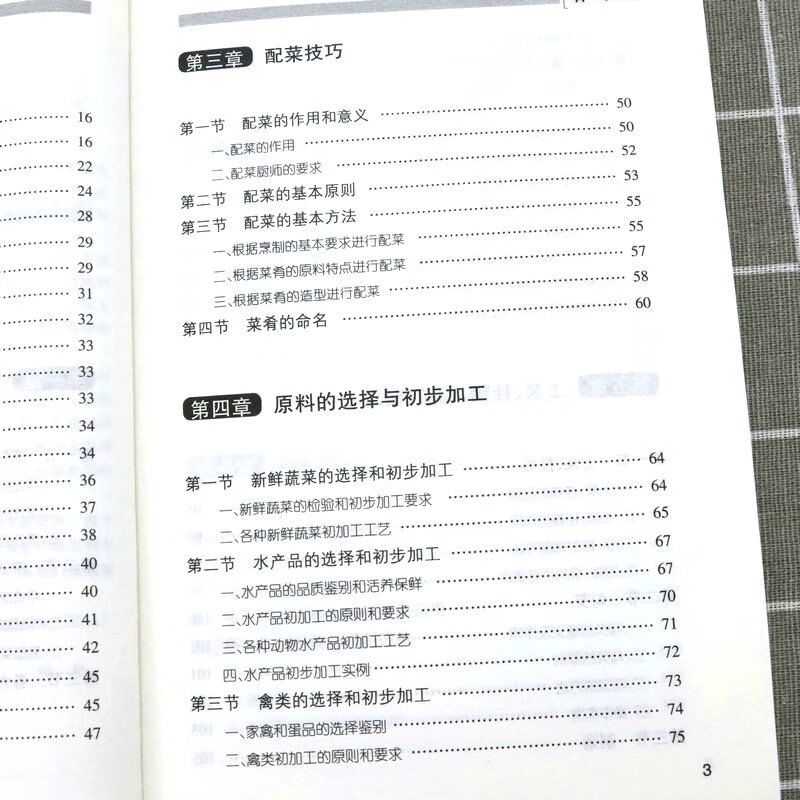 16
16
22
24
28
29
29
31
32
33
33
33
34
34
36
37
38
40
40
41
42
45
45
47
第三章 配菜技巧
第一节 配菜的作用和意义 50
一、配菜的作用 50
二、配菜厨师的要求 52
第二节 配菜的基本原则 53
第三节 配菜的基本方法 55
一、根据烹制的基本要求进行配菜 55
二、根据菜肴的原料特点进行配菜 57
三、根据菜肴的造型进行配菜 58
第四节 菜肴的命名 60
第四章 原料的选择与初步加工
第一节 新鲜蔬菜的选择和初步加工 64
一、新鲜蔬菜的检验和初步加工要求 64
二、各种新鲜蔬菜初加工工艺 65
第二节 水产品的选择和初步加工 67
一、水产品的品质鉴别和活养保鲜 67
二、水产品初加工的原则和要求 70
三、各种动物水产品初加工工艺 71
四、水产品初步加工实例 72
第三节 禽类的选择和初步加工 73
一、家禽和蛋品的选择鉴别 74
二、禽类初加工的原则和要求 75
3